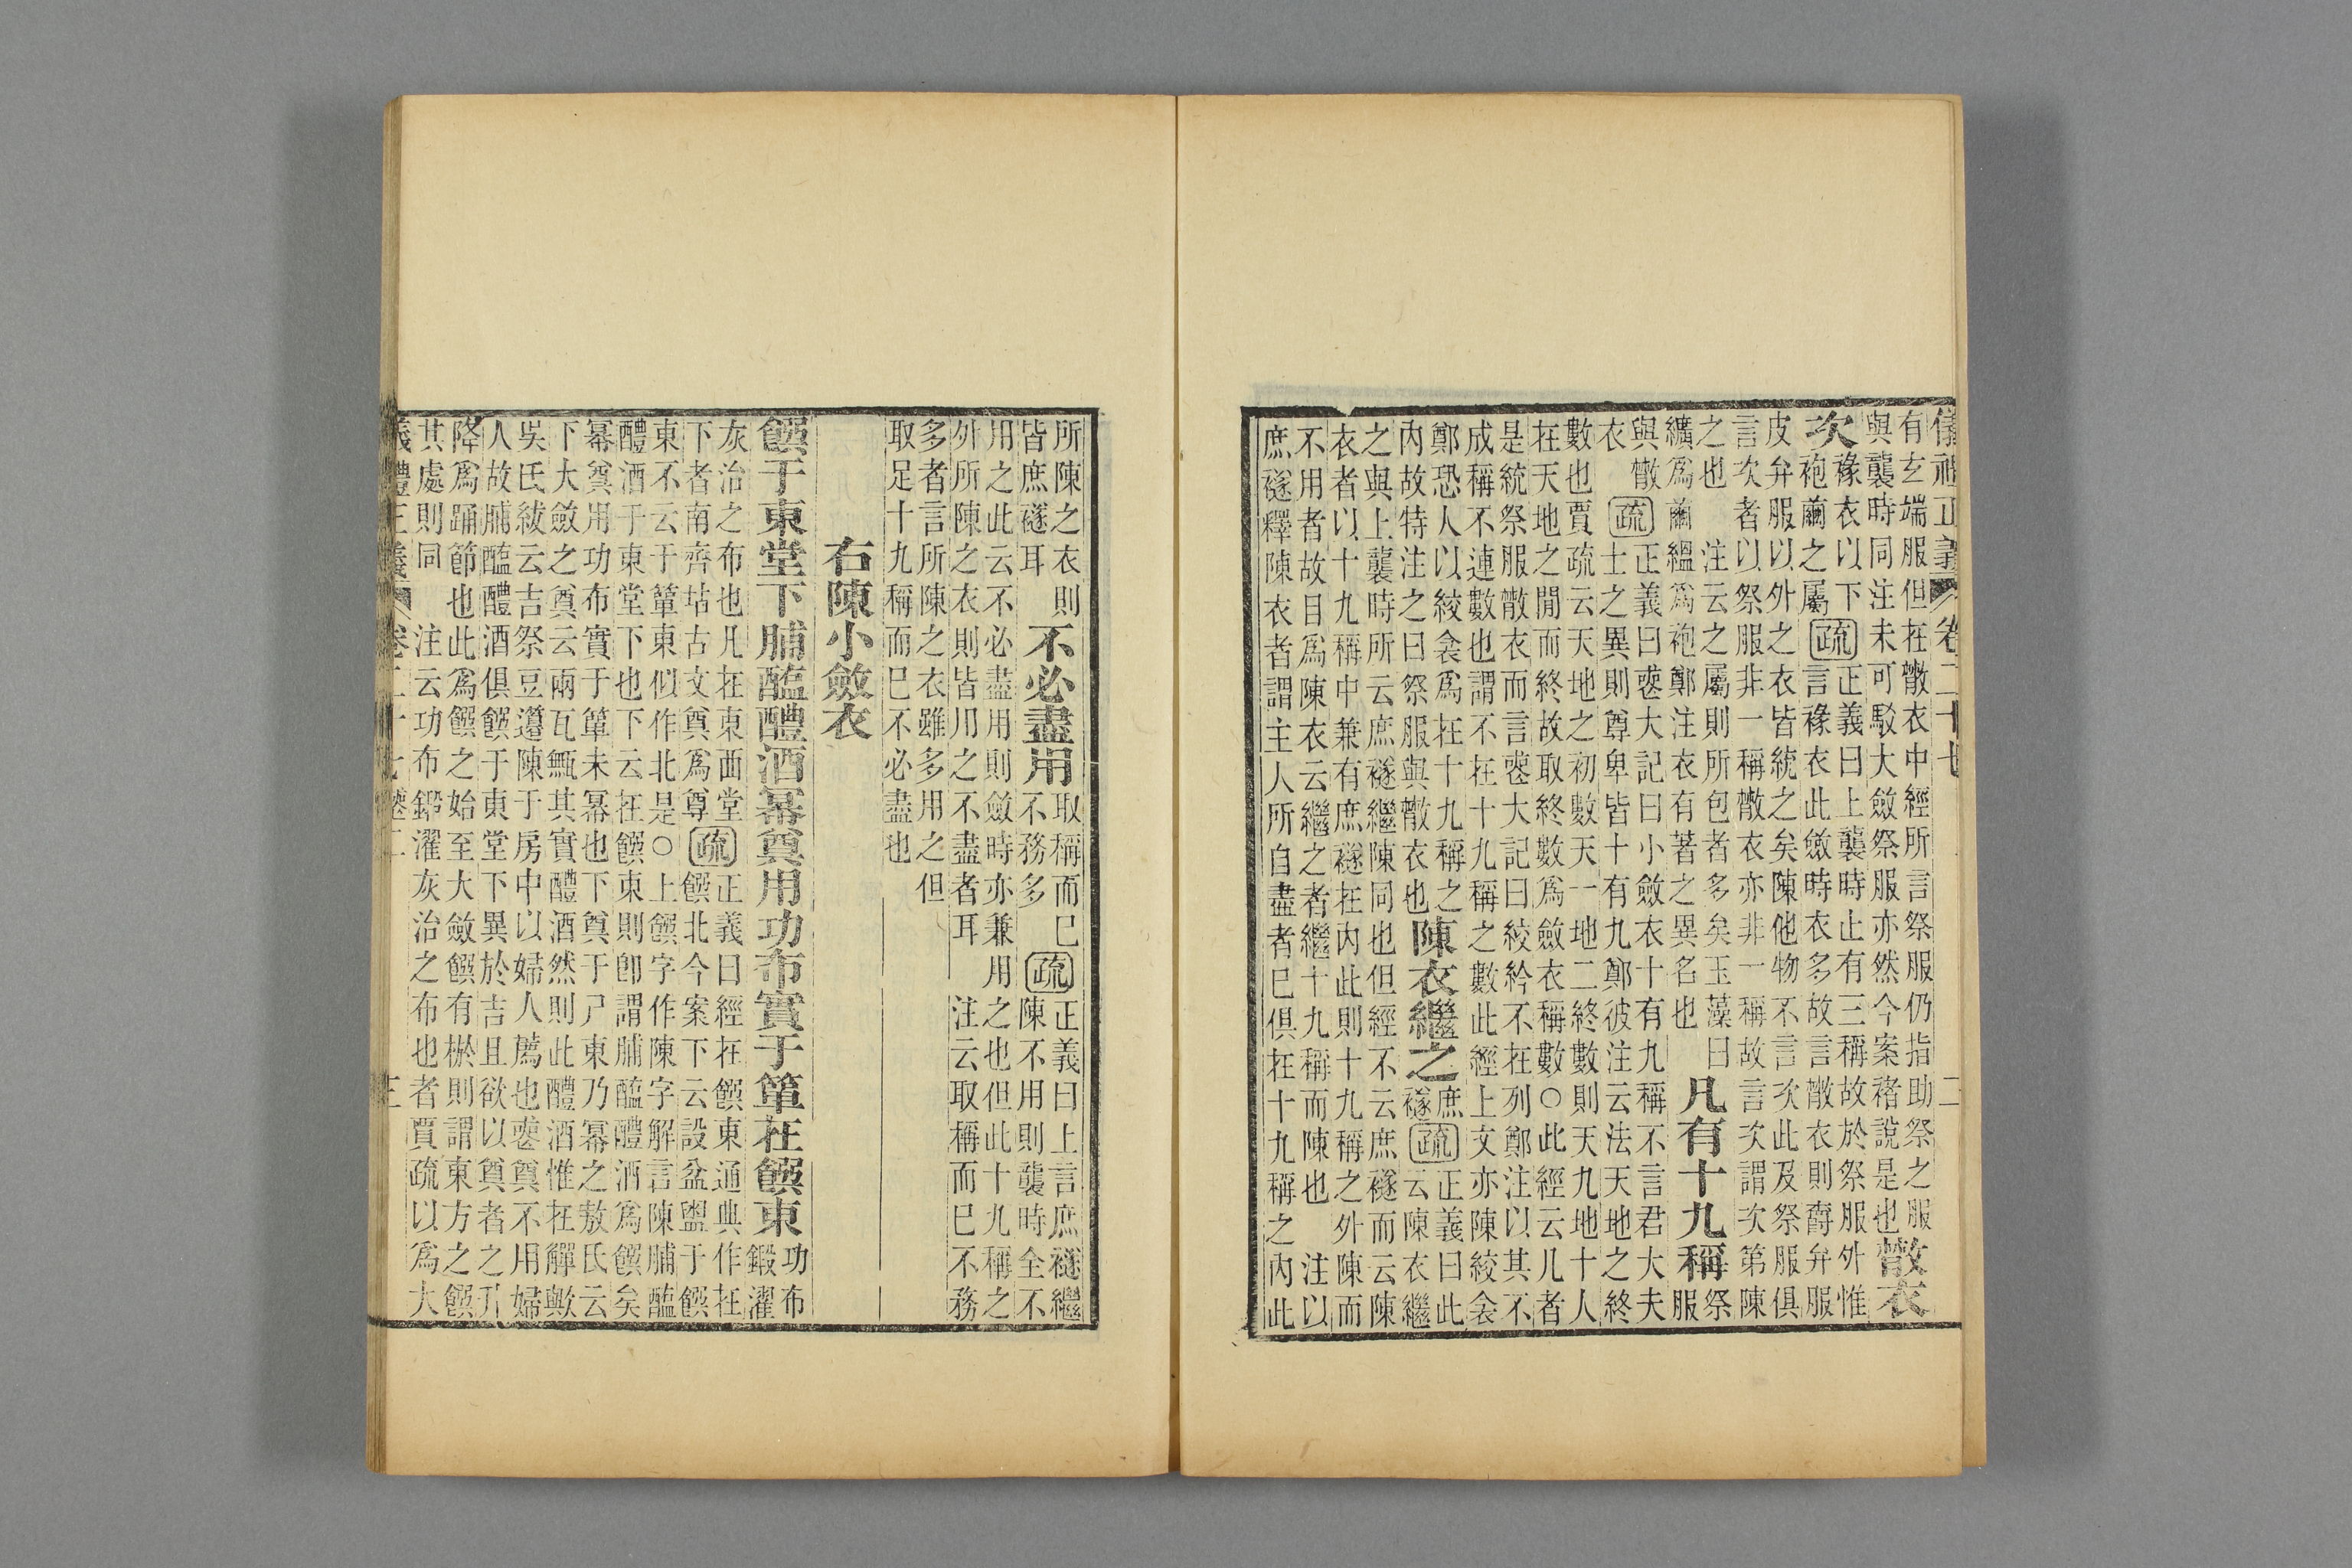 儀禮正義 卷二十七 二
有玄端服但在散衣中經所言祭服仍指助祭之服
與襲時同注未可駁大斂祭服亦然今案褚說是也散衣
次褖衣以下疏正義曰上襲時止有三稱故於祭服外惟
袍繭之屬言褖衣此斂時衣多故言散衣則爵弁服
皮弁服以外之衣皆統之矣陳他物不言次此及祭服俱
言次者以祭服非一稱散衣亦非一稱故言次謂次第陳
之也 注云之屬則所包者多矣玉藻曰
纊為繭縕為袍鄭注衣有著之異名也凡有十九稱祭服
與散
衣疏正義曰喪大記曰小斂衣十有九稱不言君大夫
士之異則尊卑皆十有九鄭彼注云法天地之終
數也賈疏云天地之初數天一地二終數則天九地十人
在天地之閒而終故取終數為斂衣稱數○此經云凡者
是統祭服散衣而言喪大記曰絞紟不在列鄭注以其不
成稱不連數也謂不在十九稱之數此經上文亦陳絞衾
鄭恐人以絞衾為在十九稱之
內故特注之曰祭服與散衣也陳衣繼之庶襚疏正義曰此云陳衣繼
之與上襲時所云庶襚繼陳同也但經不云庶襚而云陳
衣者以十九稱中兼有庶襚在內此則十九稱之外陳而
不用者故目為陳衣云繼之者繼十九稱而陳也 注以
庶襚釋陳衣者謂主人所自盡者已俱在十九稱之內此
所陳之衣則
皆庶襚耳不必盡用取稱而已不務多疏正義曰上言庶襚繼陳不用則襲時全不
用之此云不必盡用則斂時亦兼用之也但此十九稱之
外所陳之衣則皆用之不盡者耳 注云取稱而已不務
多者言所陳之衣雖多用之但
取足十九稱而已不必盡也
右陳小斂衣
饌于東堂下脯醢醴酒冪奠用功布實于簞在饌東功布鍛濯
灰治之布也凡在東西堂
下者南齊坫古文奠為尊疏正義曰經在饌東通典作在饌北今案下云設盆盥于饌
東不云于簞東似作北是○上饌字作陳字解言陳脯醢
醴酒于東堂下也下云在饌東則卽謂脯醢醴酒為饌矣
冪奠用功布實于簞未冪也下奠于尸東乃冪之敖氏云
下大斂之奠云兩瓦甒其實醴酒然則此醴酒惟在觶歟
吳氏紱云吉祭豆籩陳于房中以婦人薦也喪奠不用婦
人故脯醢醴酒俱饌于東堂下異於吉且欲以奠者之升
降為踊節也此為饌之始至大斂饌有棜則謂東方之饌
其處則同 注云功布鍛濯灰治之布也者賈疏以為大
儀禮正義 卷二十七 喪二 三